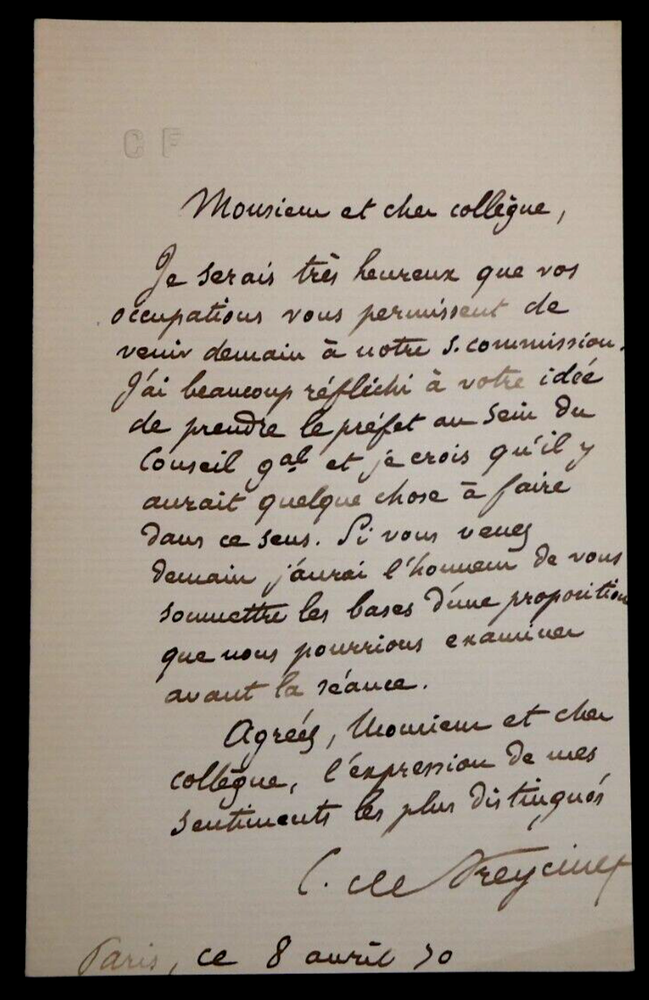 C F
Monsieur et cher collègue,
Je serais très heureux que vos
occupations vous permissent de
venir demain à notre s. commission.
J'ai beaucoup réfléchi à votre idée
de prendre le préfet au sein du
Conseil gal et je crois qu'il y
aurait quelque chose à faire
dans ce sens. Si vous venez
demain j'aurai l'honneur de vous
soumettre les bases d'une proposition
que nous pourrions examiner
avant la séance.
Agréez, Monsieur et cher
collègue, l'expression de mes
sentiments les plus distingués
C. de Freycinet
Paris, ce 8 avril 70